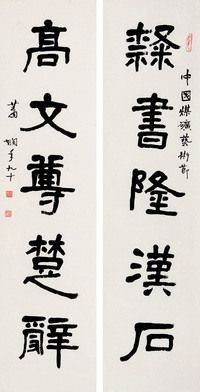 隸書隆漢石
中國煤礦藝術節
髙文尊楚辭
蕭嫻年九十